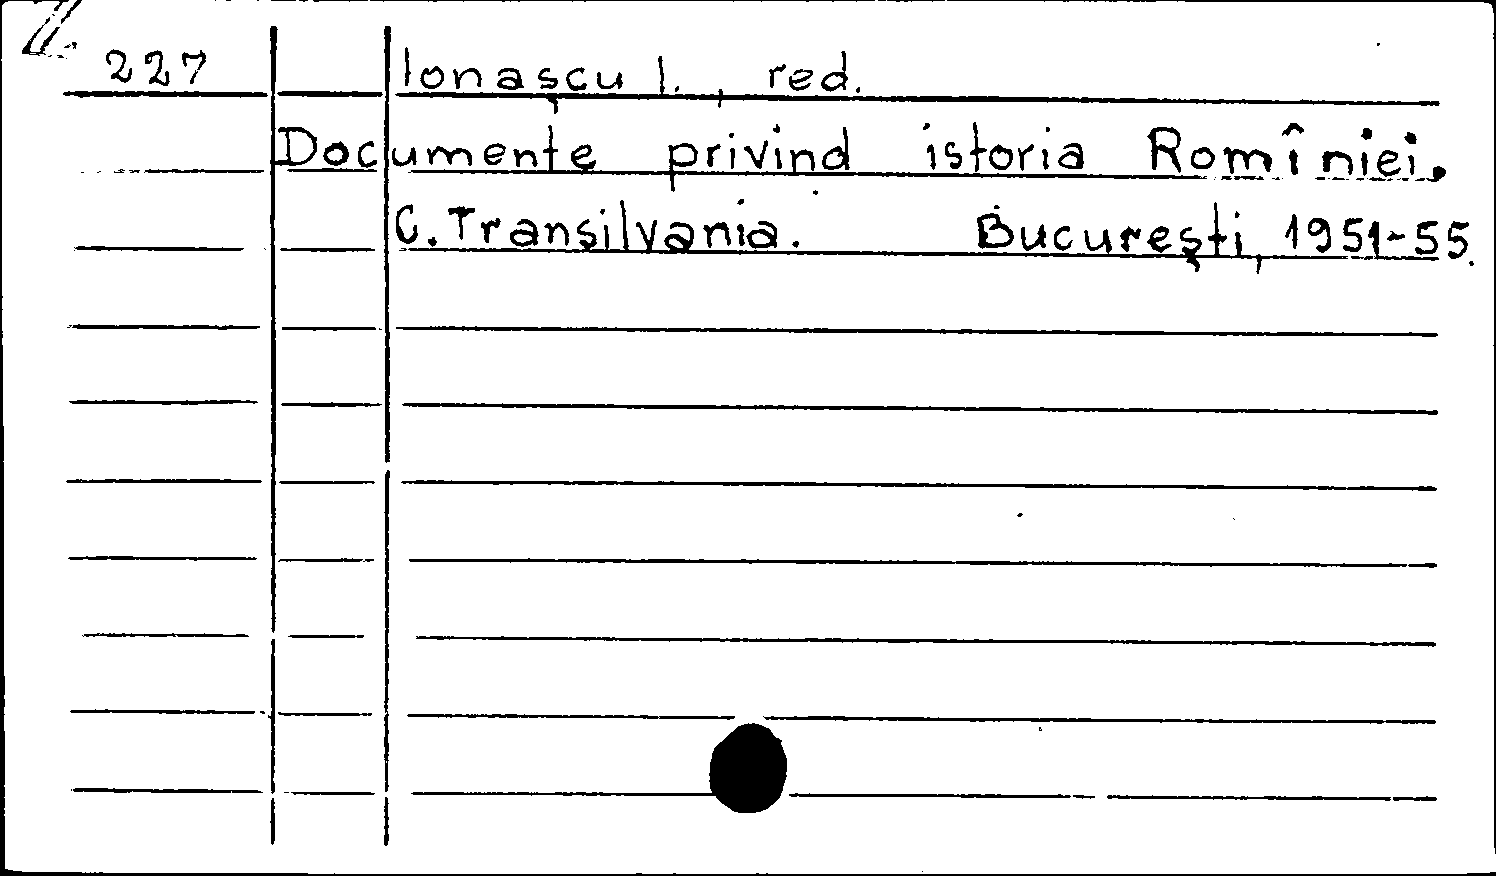 227 Ionașcu I., red.
Documente privind istoria Romîniei.
C. Transilvania. București, 1951-55.